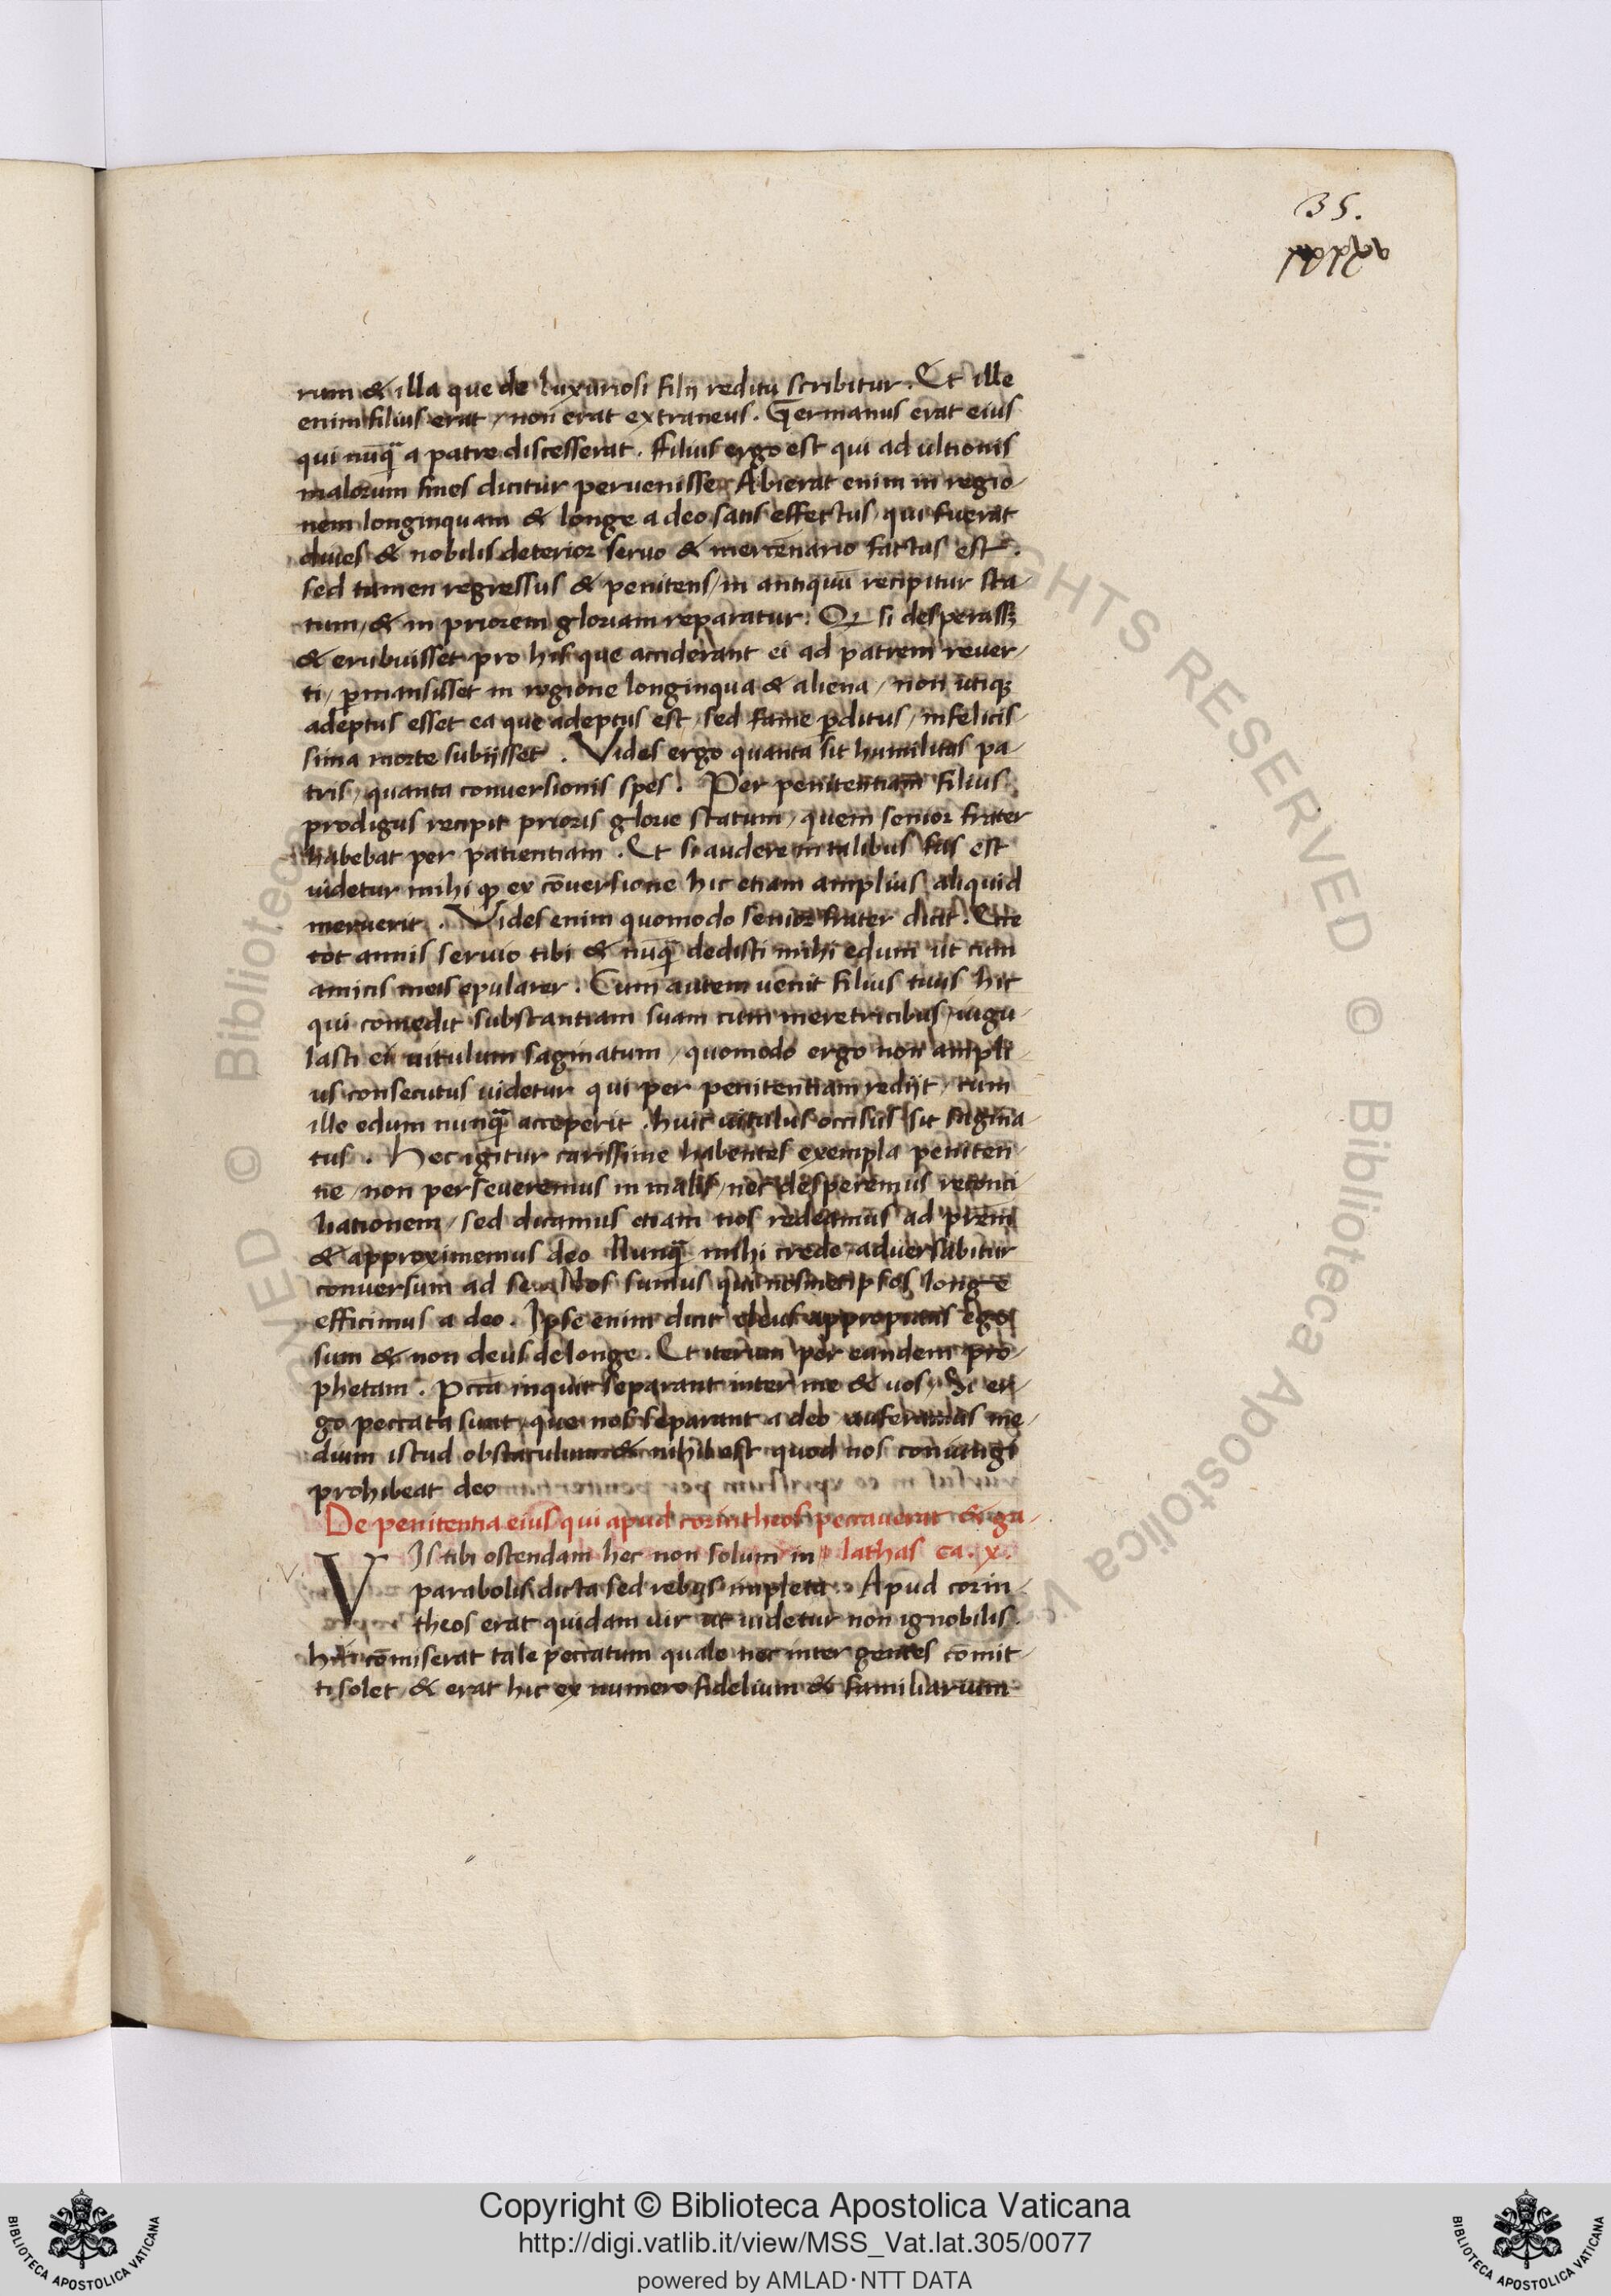 35.
xxxv
rum & illa que de luxuriosi filij reditu scribitur. Et ille
enim filius erat / non erat extraneus. Germanus erat eius
qui nūq̄ a patre discesserat. Filius ergo est qui ad ultionis
malorum fines dicitur peruenisse. Abierat enim in regio-
nem longinquam & longe a deo satis effectus qui fuerat
diues & nobilis deterior seruo & mercēnario factus est.
sed tamen regressus & penitens / in antiquū recipitur sta-
tum / & in priorem gloriam reparatur. si desperass&
& erubuisset pro his que acciderant ei ad patrem reuer-
ti / p̄mansisset in regione longinqua & aliena / non utiq;
adeptus esset ea que adeptus est / sed fame p̄ditus / infelicis-
sima morte subijsset. Vides ergo quanta sit humilitas pa-
tris / quanta conuersionis spes. Per penitentiam filius
prodigus recipit prioris glorie statum / quem senior frater
habebat per patientiam. Et si audere in talibus fas est
uidetur mihi ꝙ ex cōuersione hic etiam amplius aliquid
meruerit. Vides enim quomodo senior frater dicit. Ecce
tot annis seruio tibi & nūq̄ dedisti mihi edum ut cum
amicis meis epularer. Cum autem uenit filius tuus hic
qui comedit substantiam suam cum meretricibus / iugu-
lasti ei uitulum saginatum / quomodo ergo non ampli-
us consecutus uidetur qui per penitentiam redijt / cum
ille edum nunq̄ acceperit. huic uitulus occisus sit sagina-
tus. Hec igitur carissime habentes exempla peniten-
tie / non perseueremus in malis / nec desperemus reconci-
liationem / sed dicamus etiam nos redeamus ad prēm
& approximemus deo Nunq̄ mihi crede aduersabitur
conuersum ad se. sumus qui nosmetipsos longe
efficimus a deo. Ipse enim dicit deus appropians ego
sum & non deus de longe. Et iterum per eundem pro-
phetam. Pcc̄a inquit separant inter me & uos / Si er-
go peccata sunt que nos separant a deo auferamus me-
dium istud obstaculum & nihil est quod nos coniungi
prohibeat deo
De penitentia eius qui apud corintheos peccauerat & ga-
VIs tibi ostendam hec non solum in lathas ca. x.
parabolis dicta sed rebus impleta. Apud corin-
theos erat quidam uir ut uidetur non ignobilis.
hic cōmiserat tale peccatum quale nec inter gentes cōmit-
ti solet / & erat hic ex numero fidelium & familiarium
ALL RIGHTS RESERVED © Biblioteca Apostolica Vaticana
Copyright © Biblioteca Apostolica Vaticana
http://digi.vatlib.it/view/MSS_Vat.lat.305/0077
powered by AMLAD·NTT DATA
BIBLIOTECA APOSTOLICA VATICANA
BIBLIOTECA APOSTOLICA VATICANA